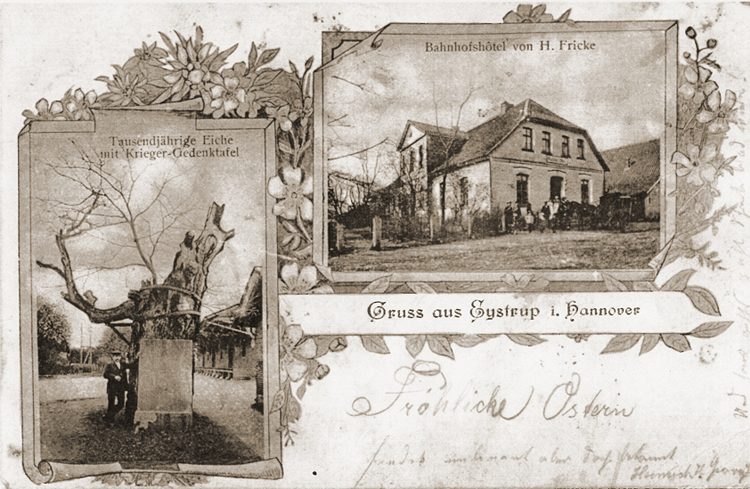 Bahnhofshôtel von H. Fricke
Tausendjährige Eiche
mit Krieger-Gedenktafel
Gruss aus Eystrup i. Hannover
Fröhliche Ostern
sendet aber doch
Heinrich